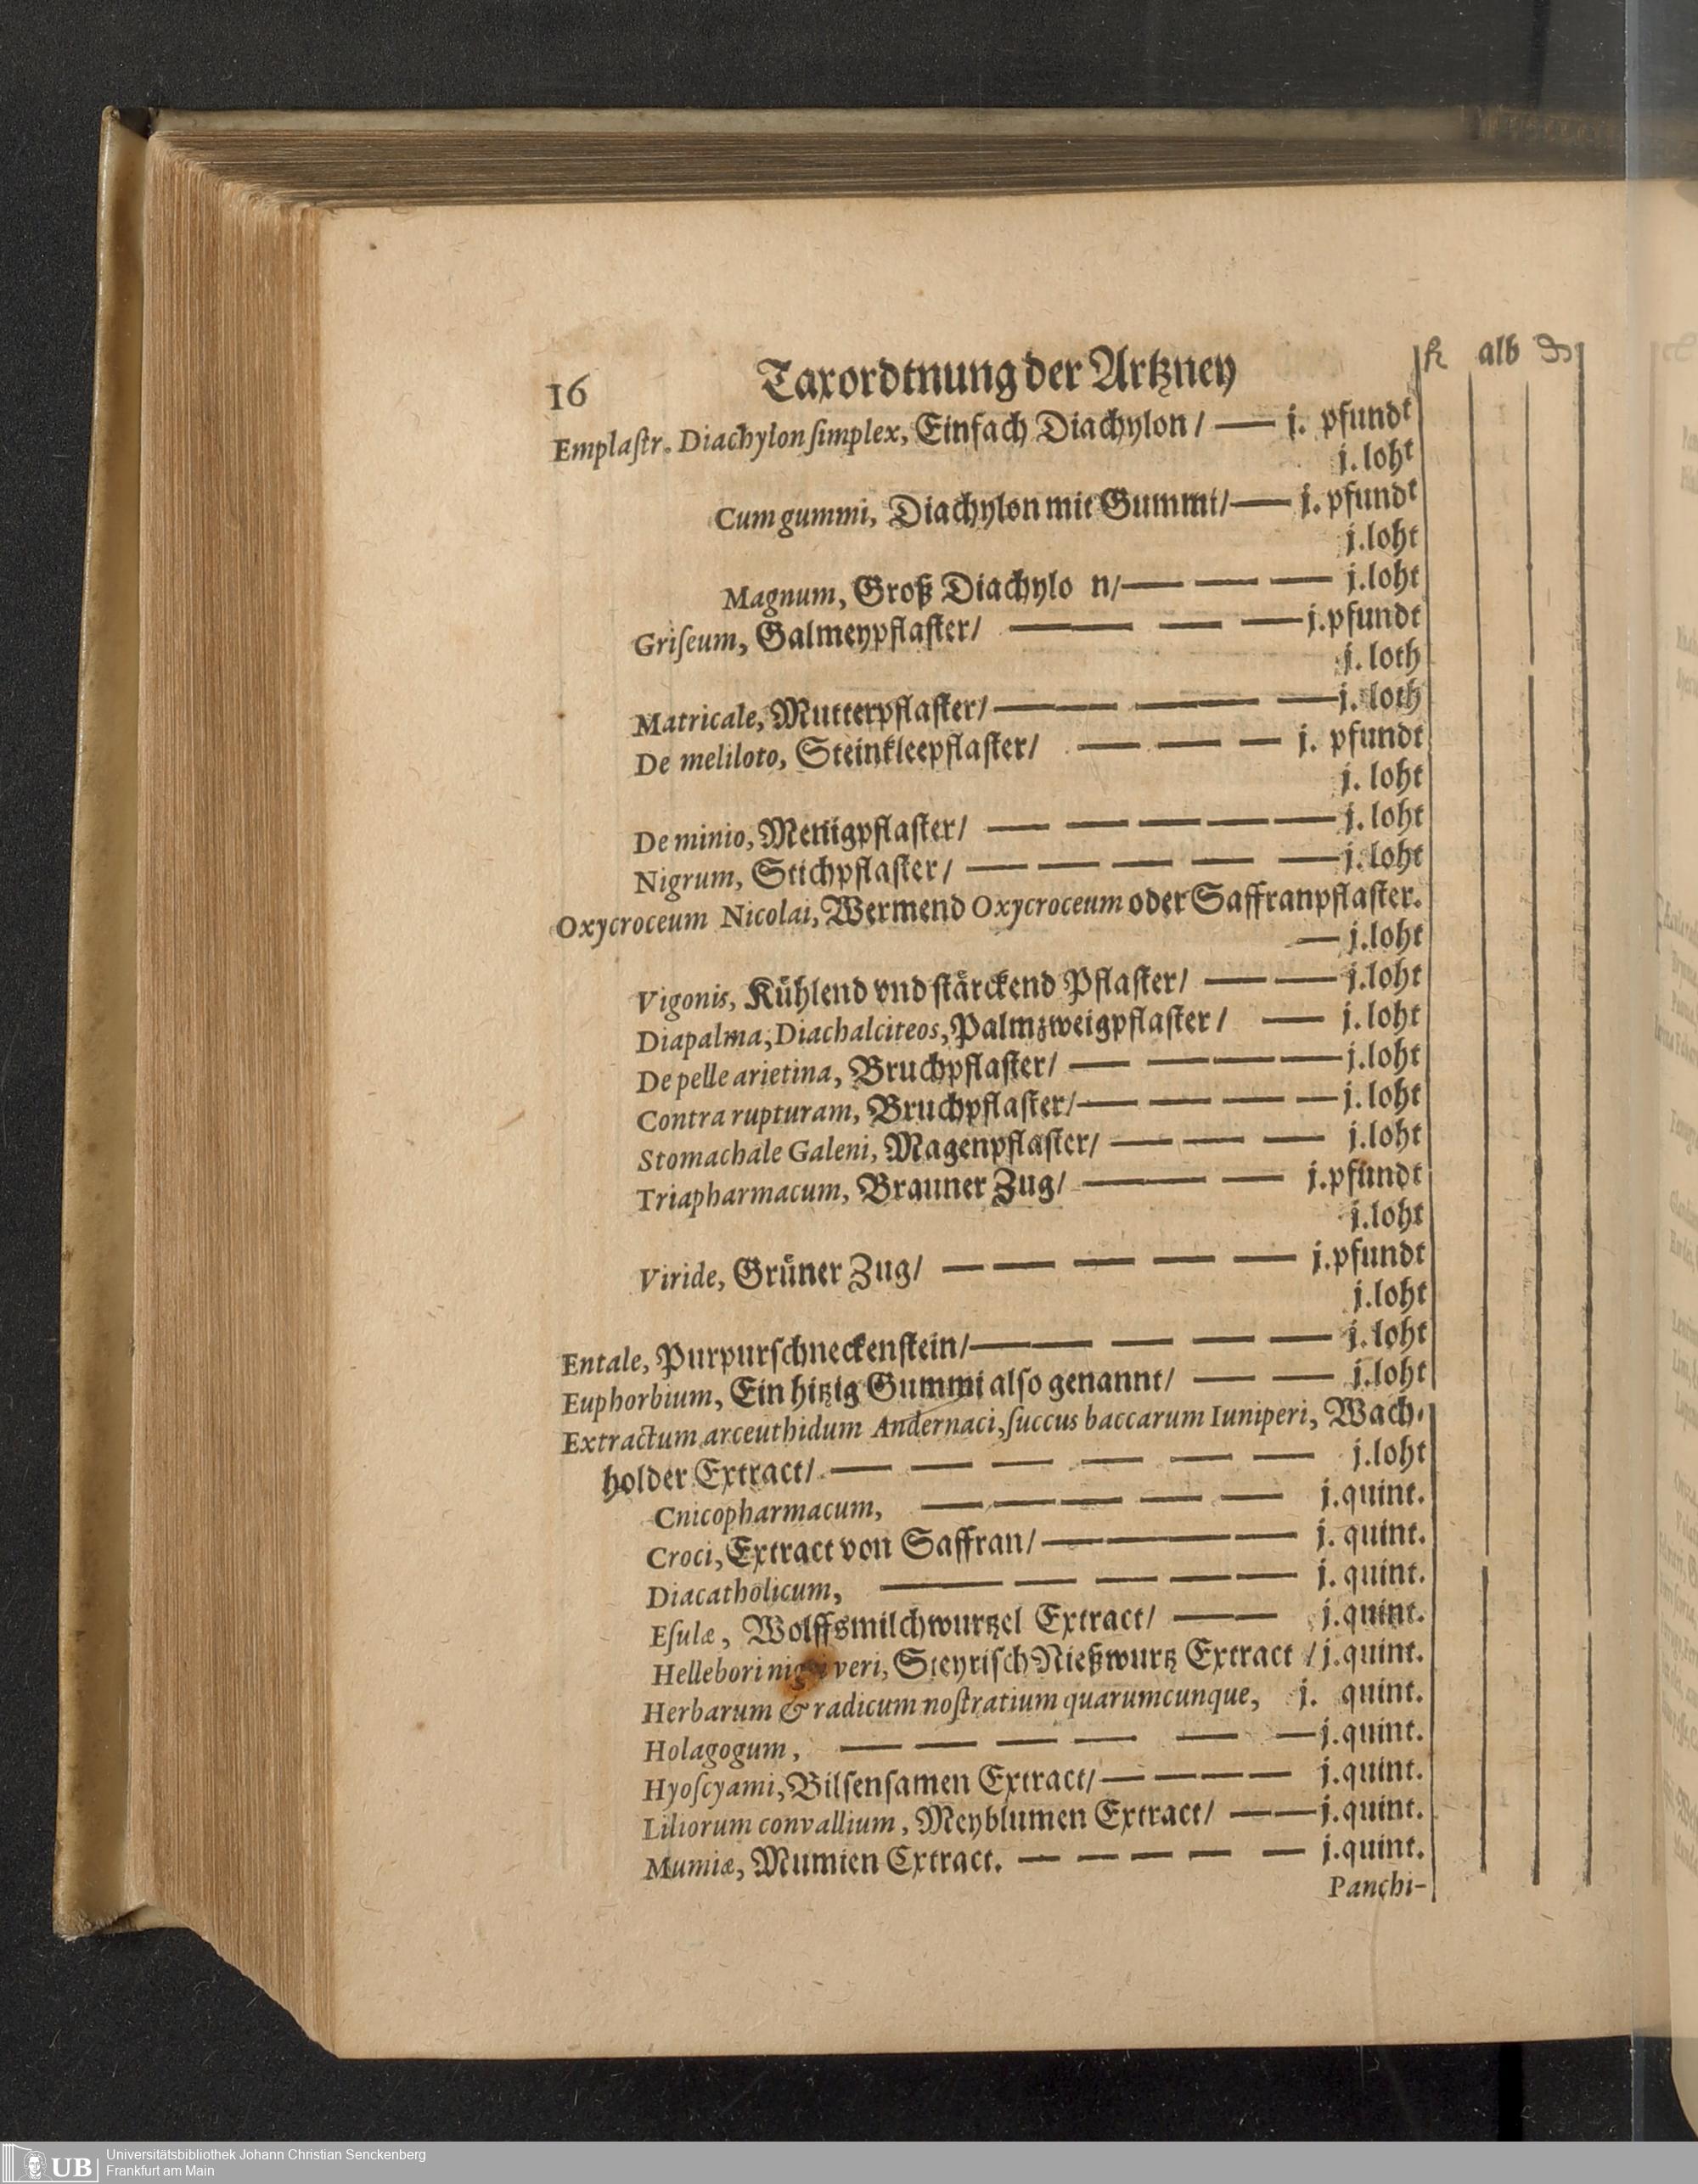 16 Taxordtnung der Artzney
alb
Emplaſtr. Diachylon ſimplex, Einfach Diachylon / — j. pfundt
j. loht
Cum gummi, Diachylon mit Gummi / — j. pfundt
j. loht
Magnum, Groß Diachylo n / — — — j. loht
Griſeum, Galmeypflaſter / — — — j. pfundt
j. loth
Matricale, Mutterpflaſter / — — — — j. loth
De meliloto, Steinkleepflaſter / — — — j. pfundt
j. loht
De minio, Menigpflaſter / — — — — — j. loht
Nigrum, Stichpflaſter / — — — — — j. loht
Oxycroceum Nicolai, Wermend Oxycroceum oder Saffranpflaſter.
— j. loht
Vigonis, Kühlend vnd ſtärckend Pflaſter / — — j. loht
Diapalma, Diachalciteos, Palmzweigpflaſter / — j. loht
De pelle arietina, Bruchpflaſter / — — — — j. loht
Contra rupturam, Bruchpflaſter / — — — — j. loht
Stomachale Galeni, Magenpflaſter / — — — j. loht
Triapharmacum, Brauner Zug / — — j. pfundt
j. loht
Viride, Grüner Zug / — — — — — j. pfundt
j. loht
Entale, Purpurſchneckenſtein / — — — — j. loht
Euphorbium, Ein hitzig Gummi alſo genannt / — — j. loht
Extractum arceuthidum Andernaci, ſuccus baccarum Iuniperi, Wach-
holder Extract / — — — — — — j. loht
Cnicopharmacum, — — — — — j. quint.
Croci, Extract von Saffran / — — — — j. quint.
Diacatholicum, — — — — — j. quint.
Eſulæ, Wolffsmilchwurtzel Extract / — — j. quint.
Hellebori nigri veri, Steyriſch Nießwurtz Extract / j. quint.
Herbarum & radicum noſtratium quarumcunque, j. quint.
Holagogum, — — — — — — j. quint.
Hyoſcyami, Bilſenſamen Extract / — — — — j. quint.
Liliorum convallium, Meyblumen Extract / — — j. quint.
Mumiæ, Mumien Extract. — — — — — j. quint.
Panchi-
UB
Universitätsbibliothek Johann Christian Senckenberg
Frankfurt am Main